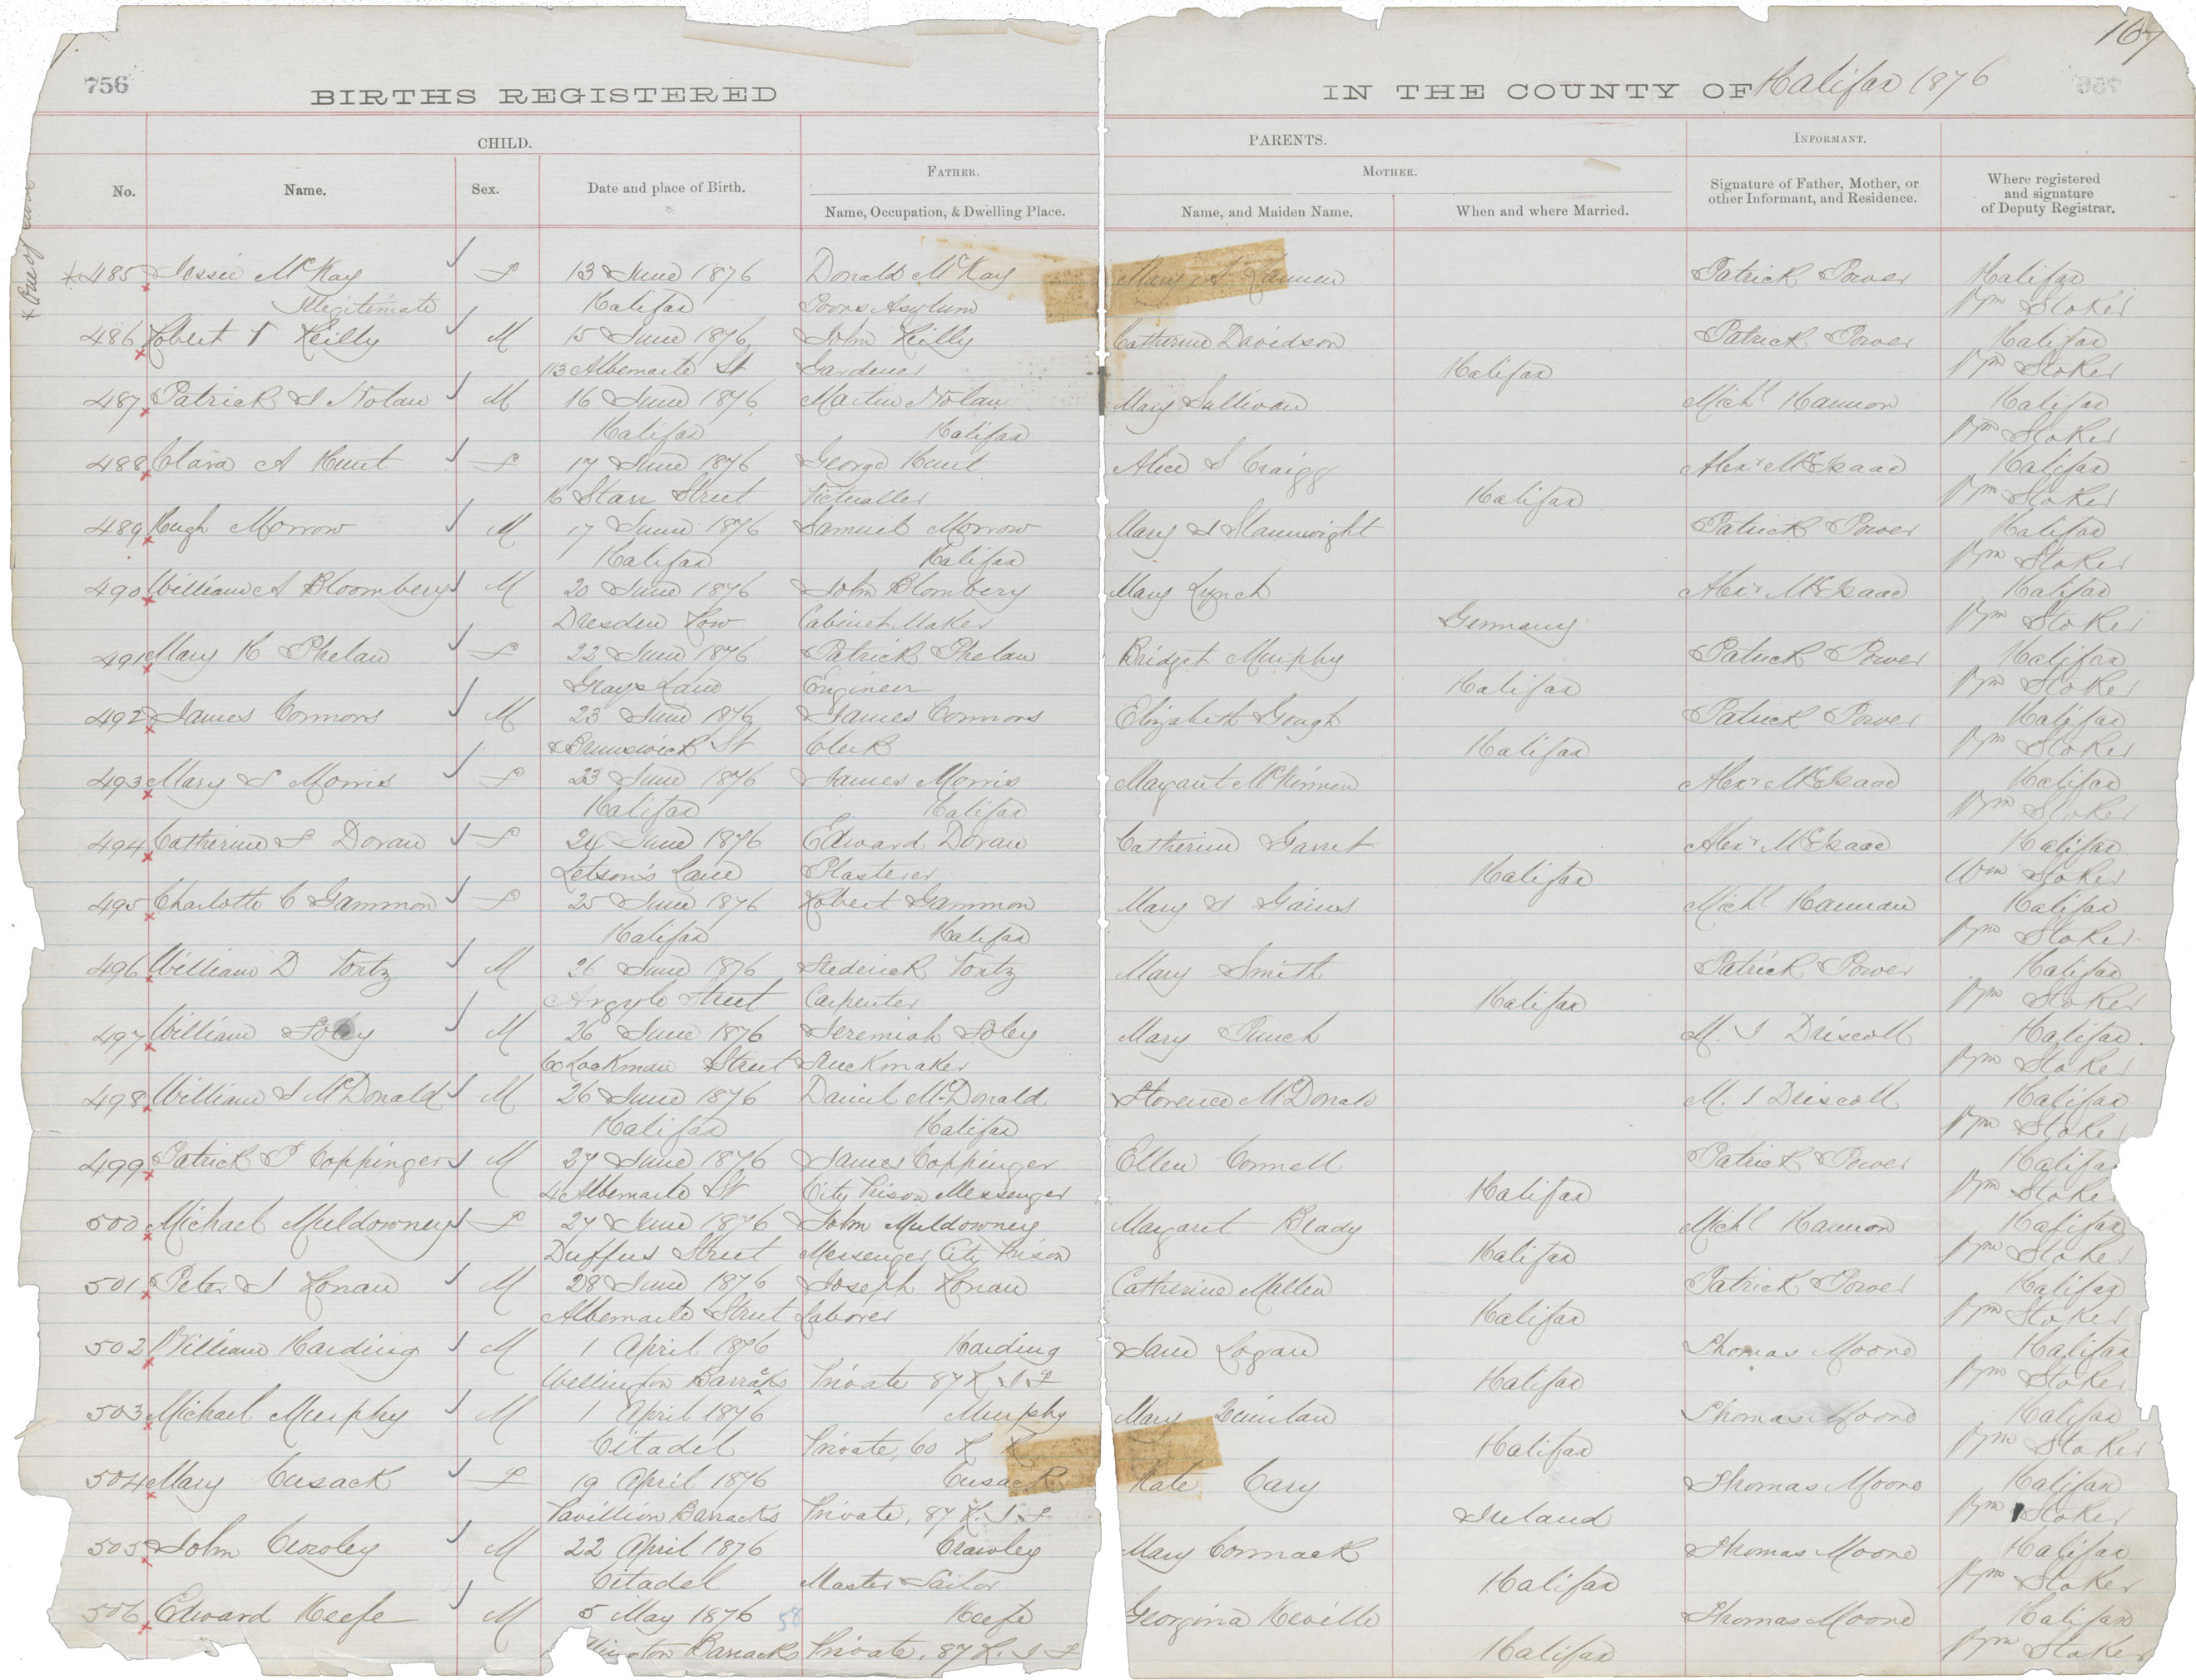 167
756 BIRTHS REGISTERED IN THE COUNTY OF Halifax 1876
CHILD. PARENTS. INFORMANT.
No. Name. Sex. Date and place of Birth. FATHER. Name, Occupation, & Dwelling Place. MOTHER. Name, and Maiden Name. When and where Married. Signature of Father, Mother, or other Informant, and Residence. Where registered and signature of Deputy Registrar.
*485 Jessie McKay F 13 June 1876 Donald McKay Mary A Patrick Power Halifax
Illegitimate Halifax Poors Asylum Wm Stoker
486 Robert Reilly M 15 June 1876 John Reilly Catherine Davidson Patrick Power Halifax
113 Albemarle St Gardener Halifax Wm Stoker
487 Patrick J Nolan M 16 June 1876 Martin Nolan Mary Sullivan Michl Hannon Halifax
Halifax Halifax Wm Stoker
488 Clara A Hunt F 17 June 1876 George Hunt Alice S Craigg Alexr McIsaac Halifax
16 Starr Street Victualler Halifax Wm Stoker
489 Hugh Morrow M 17 June 1876 Samuel Morrow Mary J Stanwright Patrick Power Halifax
Halifax Halifax Wm Stoker
490 William A Bloombery M 20 June 1876 John Blombery Mary Lynch Alexr McIsaac Halifax
Dresden Row Cabinet Maker Germany Wm Stoker
491 Mary H Phelan F 22 June 1876 Patrick Phelan Bridget Murphy Patrick Power Halifax
Grays Lane Engineer Halifax Wm Stoker
492 James Connors M 23 June 1876 James Connors Elizabeth Gough Patrick Power Halifax
Brunswick St Clerk Halifax Wm Stoker
493 Mary S Morris F 23 June 1876 James Morris Margaret McKinnen Alexr McIsaac Halifax
Halifax Halifax Wm Stoker
494 Catherine F Doran F 24 June 1876 Edward Doran Catherine Garret Alexr McIsaac Halifax
Letson's Lane Plasterer Halifax Wm Stoker
495 Charlotte C Gammon F 25 June 1876 Robert Gammon Mary J Gaines Michl Hannan Halifax
Halifax Halifax Wm Stoker
496 William D Tortz M 26 June 1876 Frederick Tortz Mary Smith Patrick Power Halifax
Argyle Street Carpenter Halifax Wm Stoker
497 William Foley M 26 June 1876 Jeremiah Foley Mary Punch M. J Driscoll Halifax
60 Lockman Street Truckmaker Wm Stoker
498 William J McDonald M 26 June 1876 Daniel McDonald Florence McDonald M. J Driscoll Halifax
Halifax Halifax Wm Stoker
499 Patrick P Coppinger M 27 June 1876 James Coppinger Ellen Connell Patrick Power Halifax
4 Albemarle St City Prison Messenger Halifax Wm Stoker
500 Michael Muldowney F 27 June 1876 John Muldowney Margaret Brady Michl Hannon Halifax
Duffus Street Messenger City Prison Halifax Wm Stoker
501 Peter J Ronan M 28 June 1876 Joseph Ronan Catherine Mullen Patrick Power Halifax
Albemarle Street Laborer Halifax Wm Stoker
502 William Harding M 1 April 1876 Harding Jane Logan Thomas Moore Halifax
Wellington Barracks Private 87 R I F Halifax Wm Stoker
503 Michael Murphy M 1 April 1876 Murphy Mary Quinlan Thomas Moore Halifax
Citadel Private, 60 R R Halifax Wm Stoker
504 Mary Cusack F 19 April 1876 Cusack Kate Cary Thomas Moore Halifax
Pavillion Barracks Private, 87 R. I F Ireland Wm Stoker
505 John Crowley M 22 April 1876 Crawley Mary Cormack Thomas Moore Halifax
Citadel Master Tailor Halifax Wm Stoker
506 Edward Keefe M 5 May 1876 58 Keefe Georgina Neville Thomas Moore Halifax
Barracks Private, 87 R. I F Halifax Wm Stoker